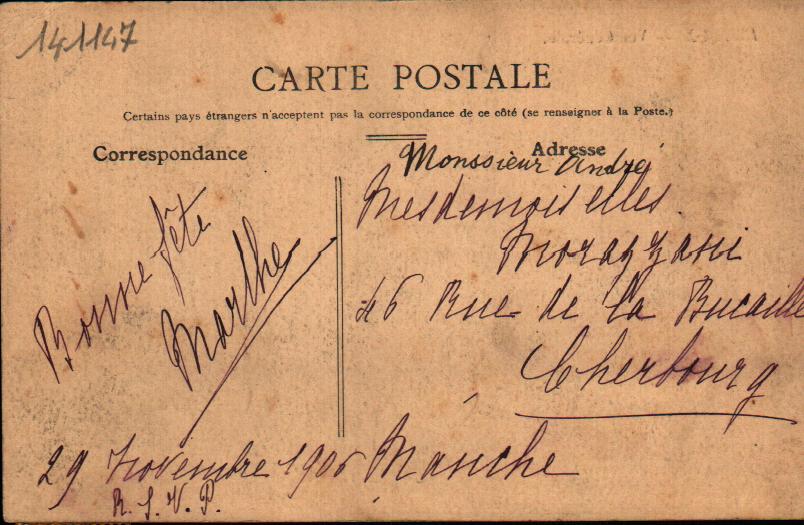 141147
CARTE POSTALE
Certains pays étrangers n'acceptent pas la correspondance de ce côté (se renseigner à la Poste.)
Correspondance
Adresse
Bonne fête
Marthe
29 Novembre 1906
R. S. V. P.
Monssieur André
Mesdemoiselles
Morazzani
46 Rue de la Bucaille
Cherbourg
Manche